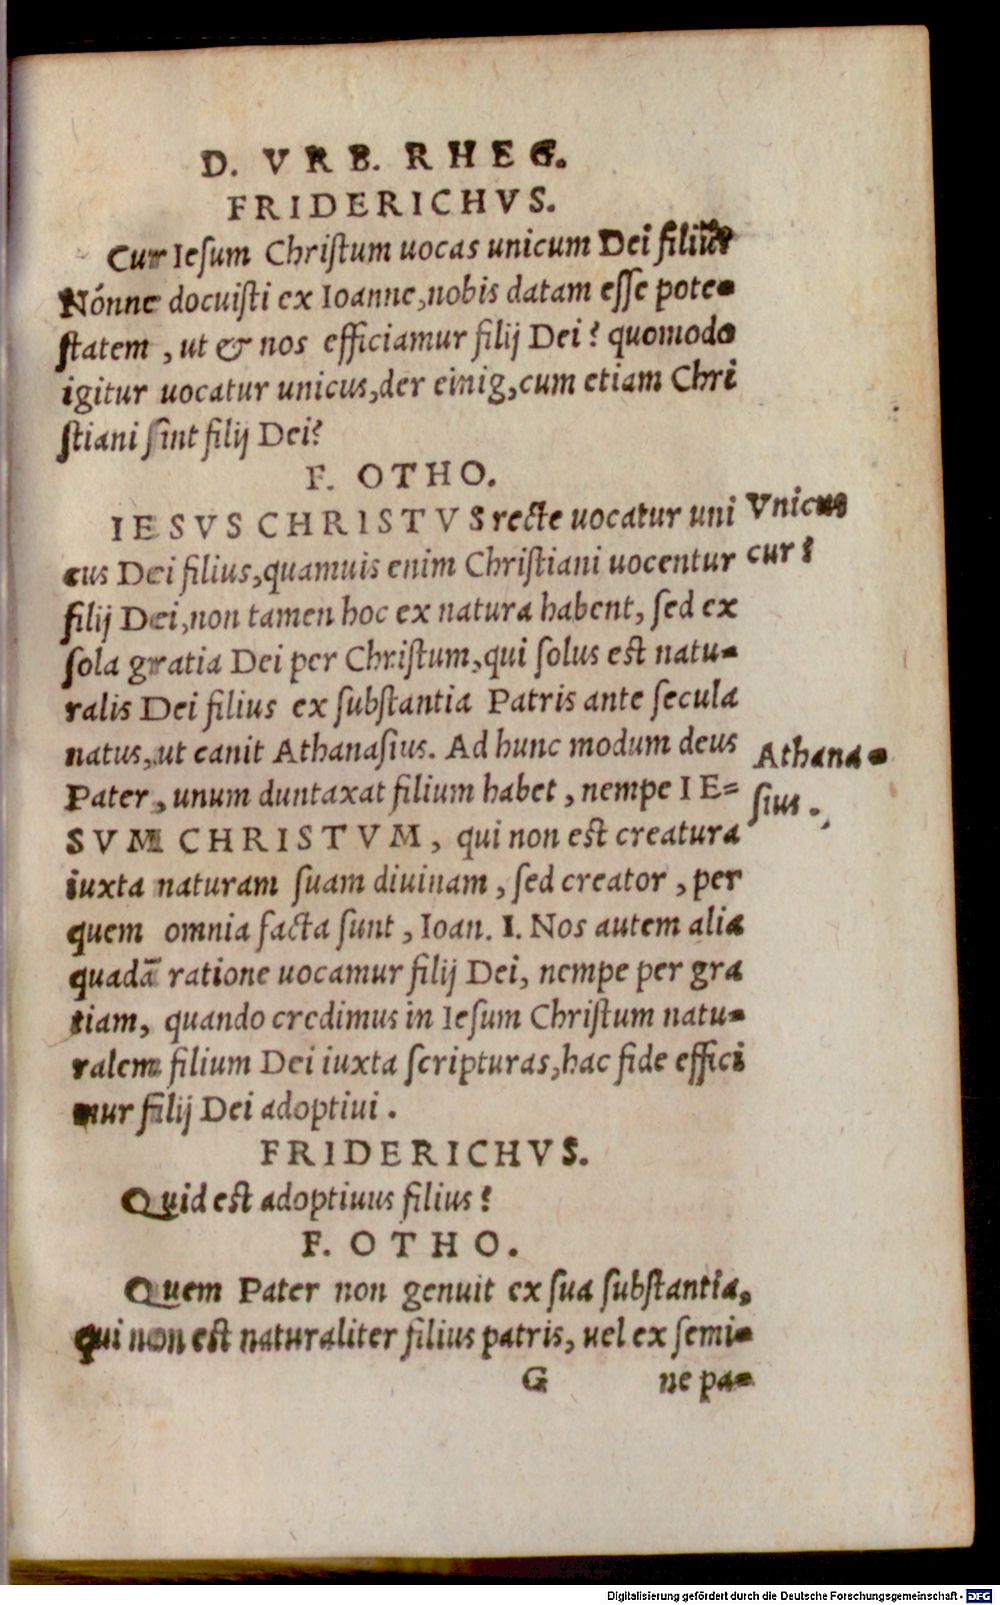 D. VRB. RHEG.
FRIDERICHVS.
Cur Iesum Christum uocas unicum Dei filiũ?
Nónne docuisti ex Ioanne, nobis datam esse pote-
statem, ut & nos efficiamur filij Dei? quomodo
igitur uocatur unicus, der einig, cum etiam Chri
stiani sint filij Dei?
F. OTHO.
IESVS CHRISTVS recte uocatur uni
cus Dei filius, quamuis enim Christiani uocentur
filij Dei, non tamen hoc ex natura habent, sed ex
sola gratia Dei per Christum, qui solus est natu-
ralis Dei filius ex substantia Patris ante secula
natus, ut canit Athanasius. Ad hunc modum deus
Pater, unum duntaxat filium habet, nempe IE-
SVM CHRISTVM, qui non est creatura
iuxta naturam suam diuinam, sed creator, per
quem omnia facta sunt, Ioan. I. Nos autem alia
quadã ratione uocamur filij Dei, nempe per gra
tiam, quando credimus in Iesum Christum natu-
ralem filium Dei iuxta scripturas, hac fide effici
mur filij Dei adoptiui.
FRIDERICHVS.
Quid est adoptiuus filius?
F. OTHO.
Quem Pater non genuit ex sua substantia,
qui non est naturaliter filius patris, uel ex semi-
G ne pa-
Vnicus
cur?
Athana-
sius.
Digitalisierung gefördert durch die Deutsche Forschungsgemeinschaft - DFG